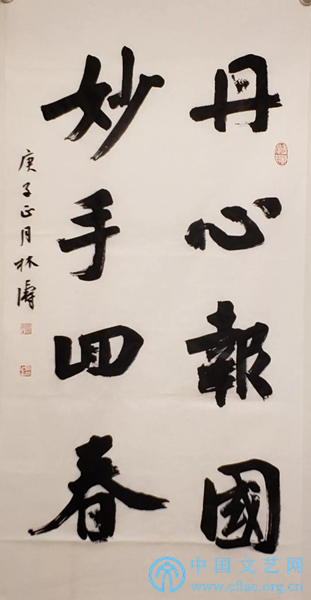 丹心報國
妙手回春
庚子正月林濤
中国文艺网
www.cflac.org.cn